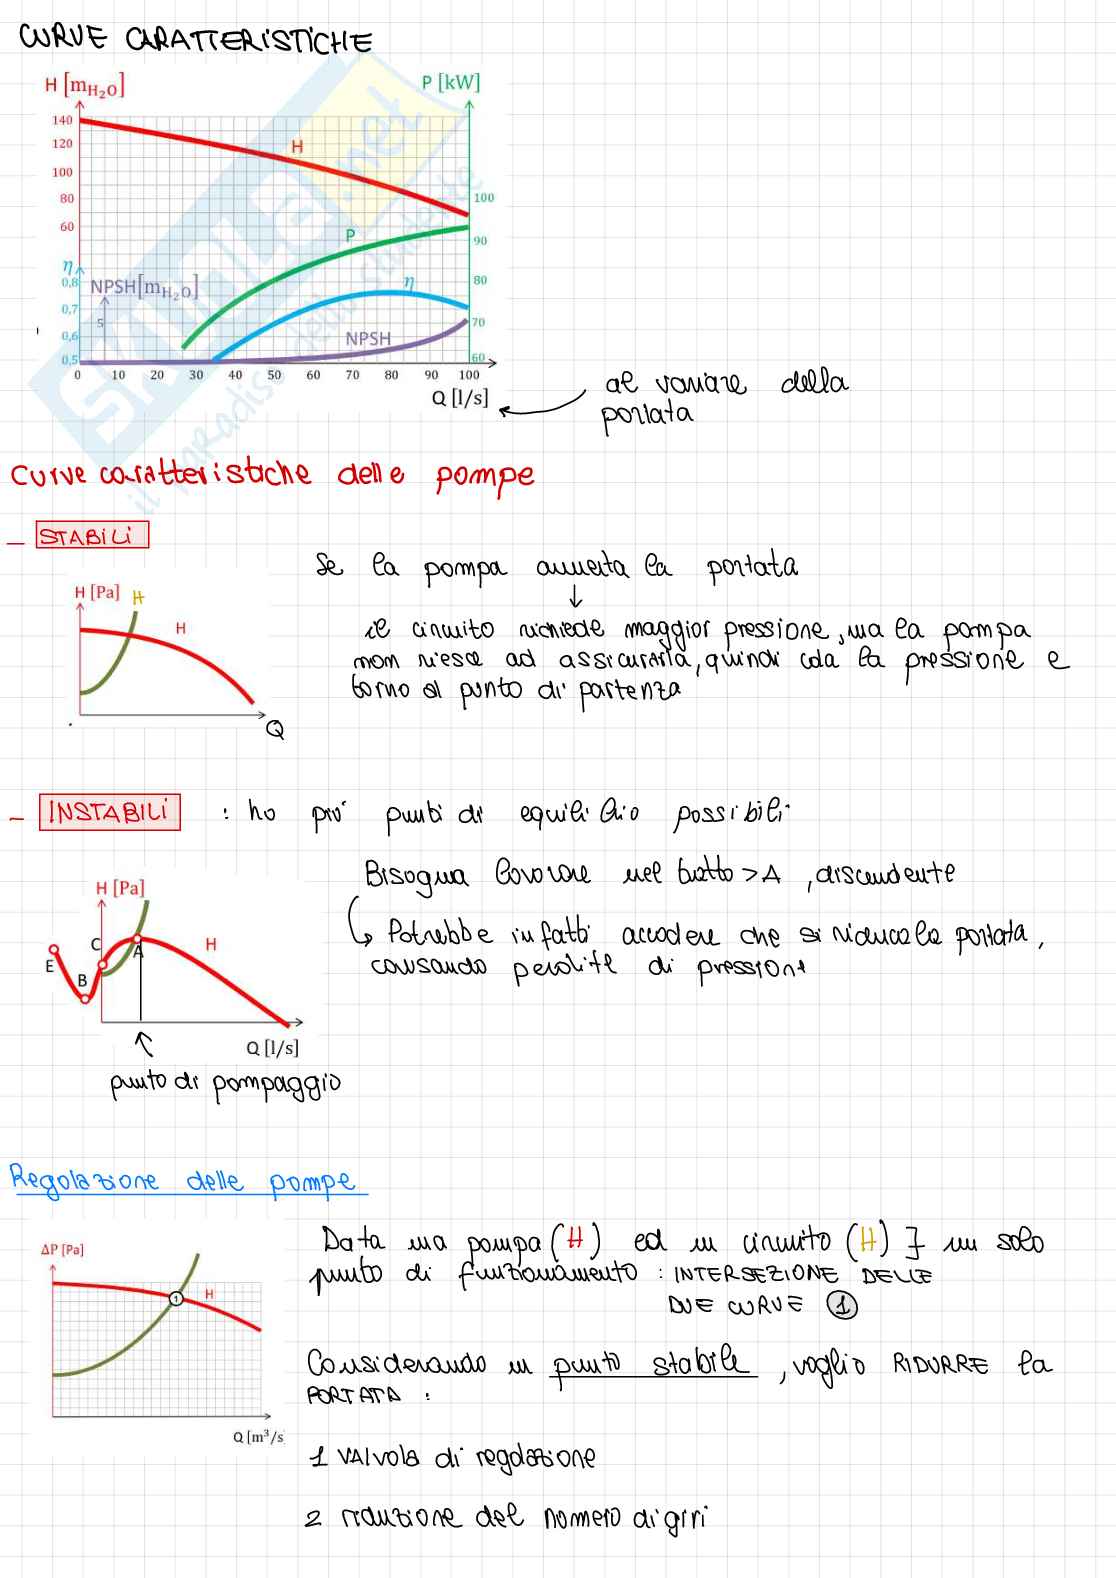 CURVE CARATTERISTICHE
H [mH₂O]
P [kW]
140
120
100
80
60
H
P
η
NPSH
η
0,8
0,7
0,6
0,5
NPSH[mH₂O]
5
100
90
80
70
60
0 10 20 30 40 50 60 70 80 90 100
Q [l/s]
al variare della
portata
Skuola.net
il paradiso dello studente
Curve caratteristiche delle pompe
- STABILI
H [Pa]
H
H
Q
Se la pompa aumenta la portata
↓
il circuito richiede maggior pressione, ma la pompa
non riesce ad assicurarla, quindi cala la pressione e
torno al punto di partenza
- INSTABILI : ho più punti di equilibrio possibili
H [Pa]
E
C
B
A
H
Q [l/s]
punto di pompaggio
Bisogna lavorare nel tratto > A, discendente
↳ Potrebbe infatti accadere che si riduca la portata,
causando perdite di pressione
Regolazione delle pompe
ΔP [Pa]
1
H
Q [m³/s]
Data una pompa (H) ed un circuito (H) ∃ un solo
punto di funzionamento : INTERSEZIONE DELLE
DUE CURVE ①
Considerando un punto stabile, voglio RIDURRE la
PORTATA :
1 VALVOLA di regolazione
2 riduzione del numero di giri